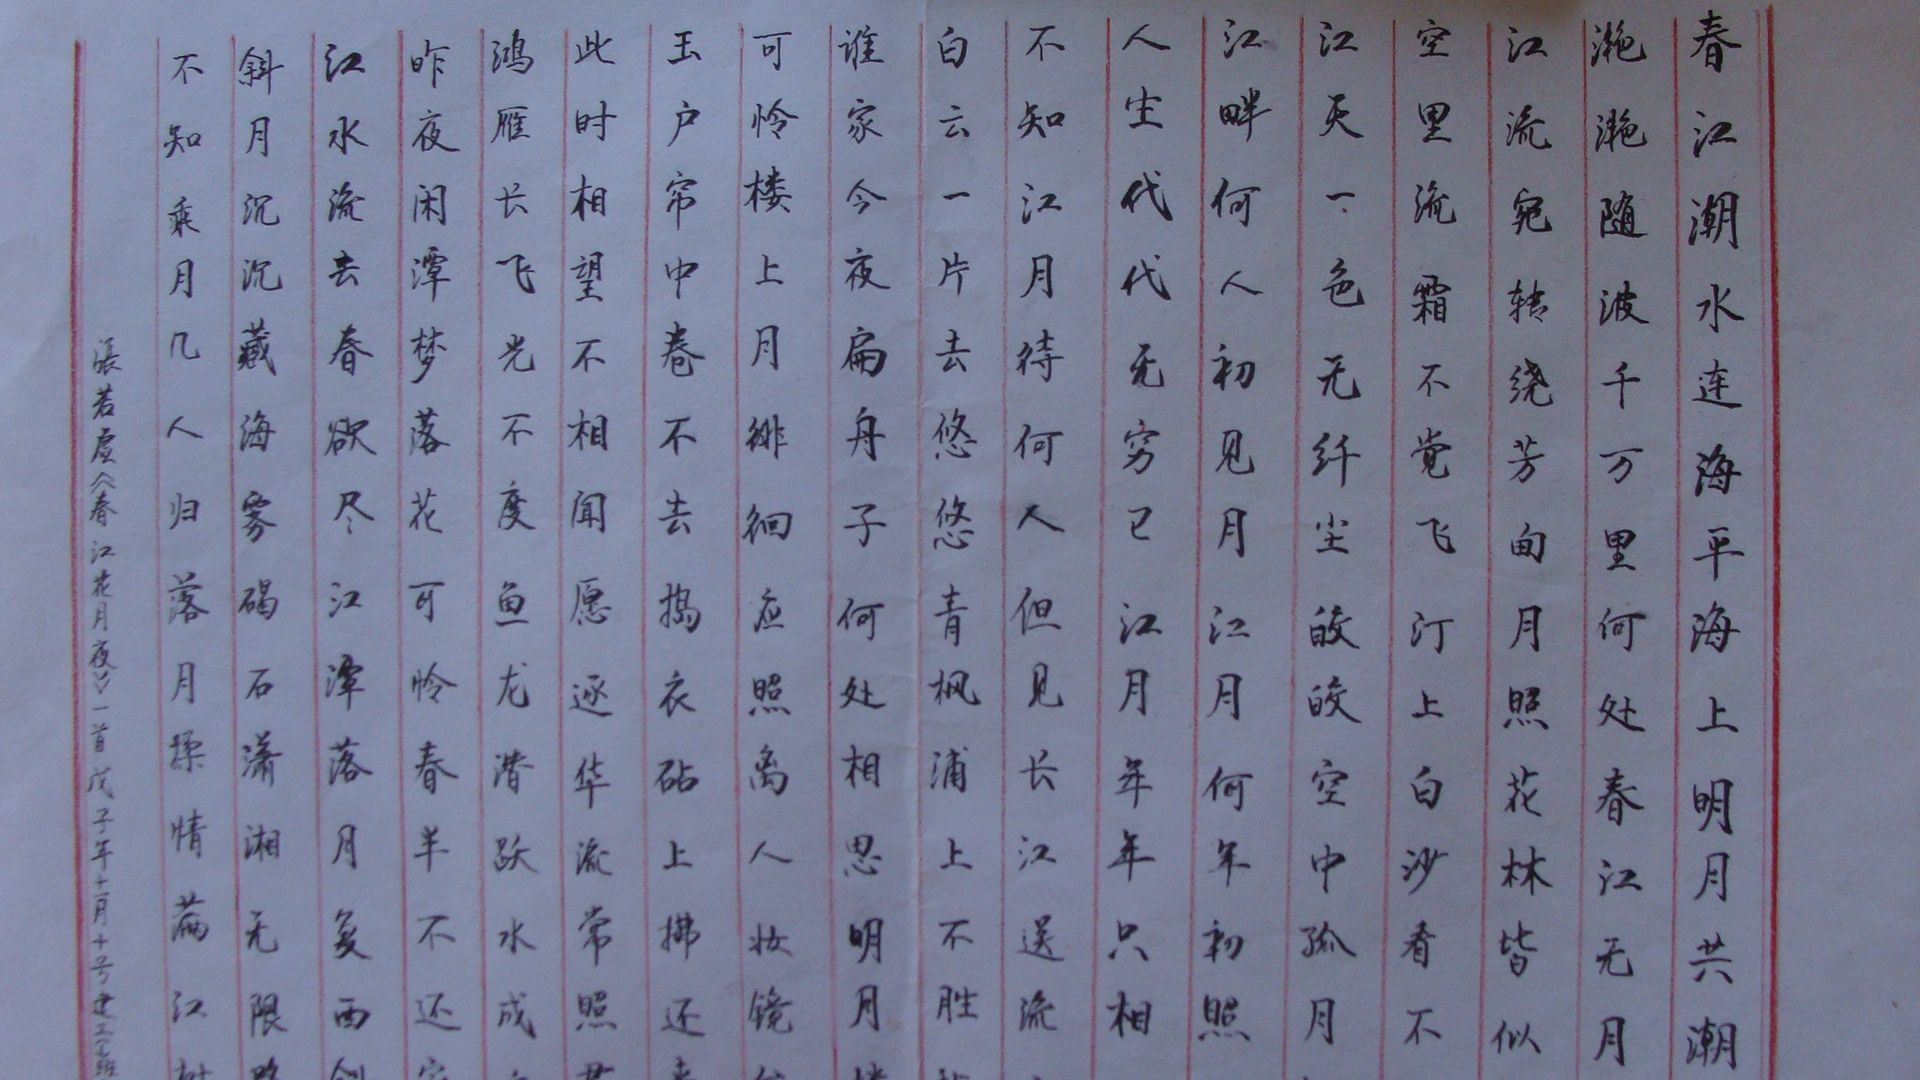 春江潮水连海平海上明月共潮
滟滟随波千万里何处春江无月
江流宛转绕芳甸月照花林皆似
空里流霜不觉飞汀上白沙看不
江天一色无纤尘皎皎空中孤月
江畔何人初见月江月何年初照
人生代代无穷已江月年年只相
不知江月待何人但见长江送流
白云一片去悠悠青枫浦上不胜
谁家今夜扁舟子何处相思明月
可怜楼上月徘徊应照离人妆镜
玉户帘中卷不去捣衣砧上拂还
此时相望不相闻愿逐华流常照
鸿雁长飞光不度鱼龙潜跃水成
昨夜闲潭梦落花可怜春半不还
江水流去春欲尽江潭落月复西
斜月沉沉藏海雾碣石潇湘无限
不知乘月几人归落月摇情满江
張若虚《春江花月夜》一首戊子年十二月十号建工